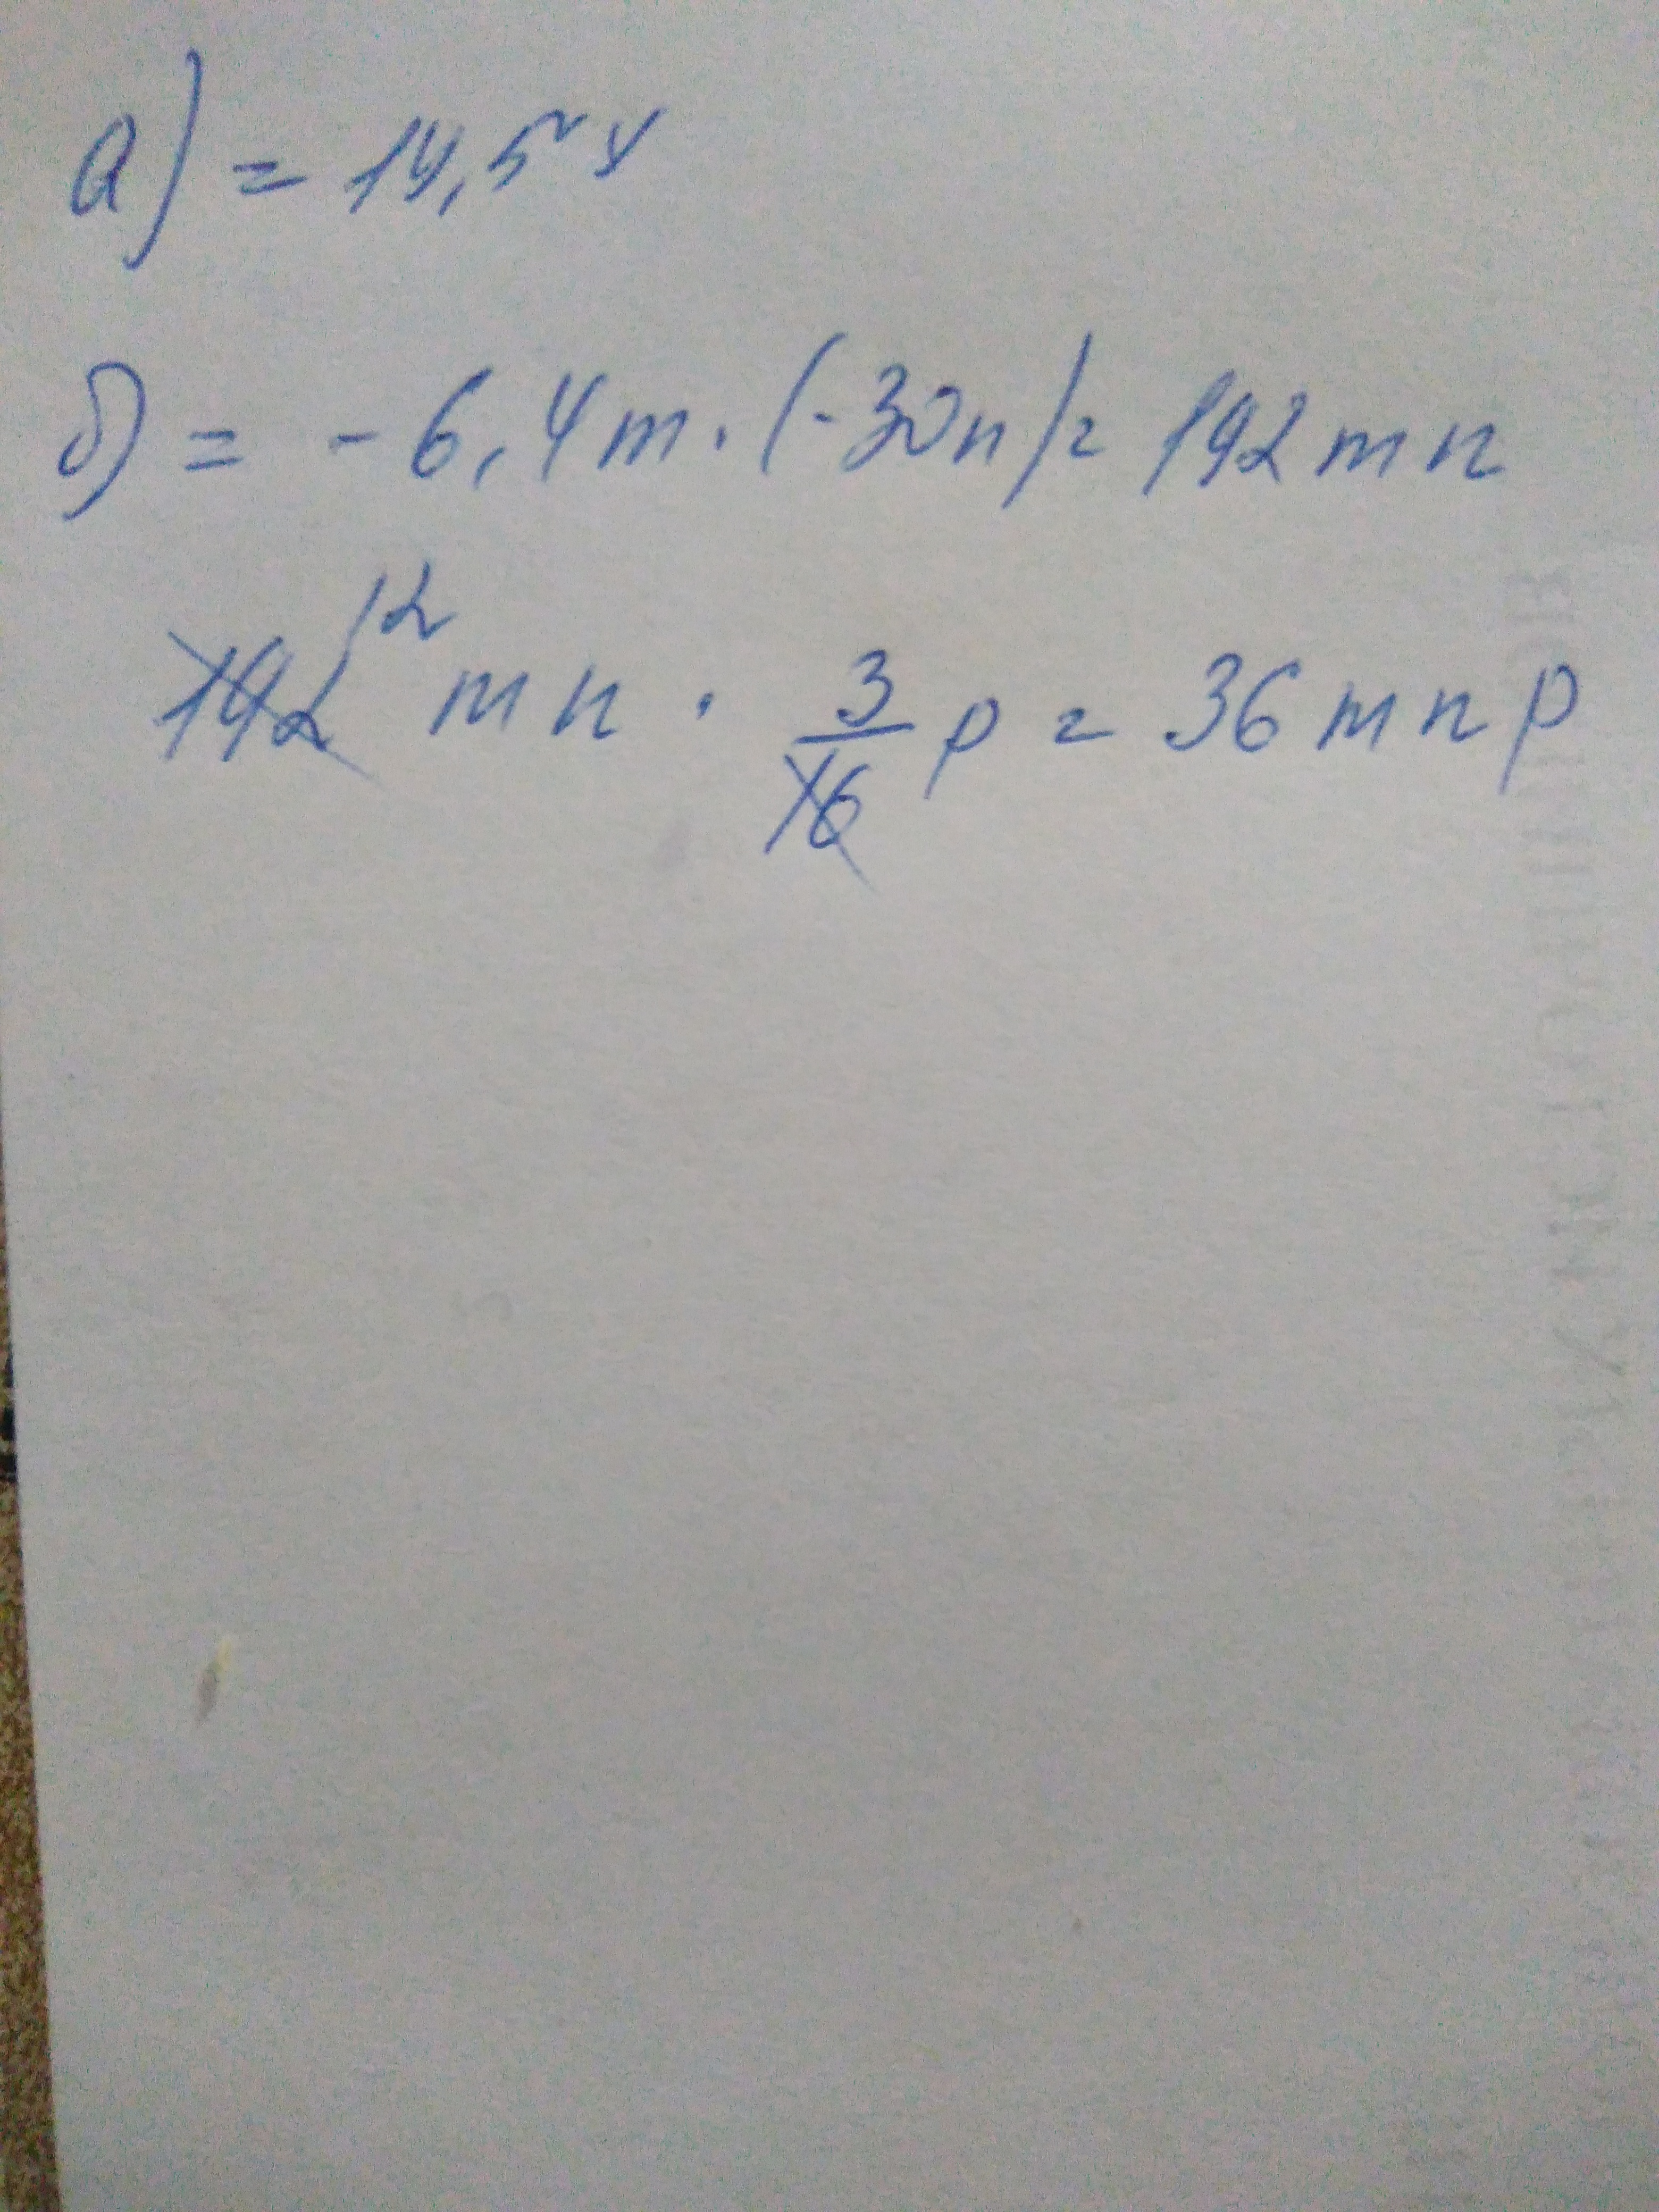 а) = 14,5 y
б) = - 6,4 m · (-30n) = 192 mn
192 12 mn · 3/16 p = 36 mnp